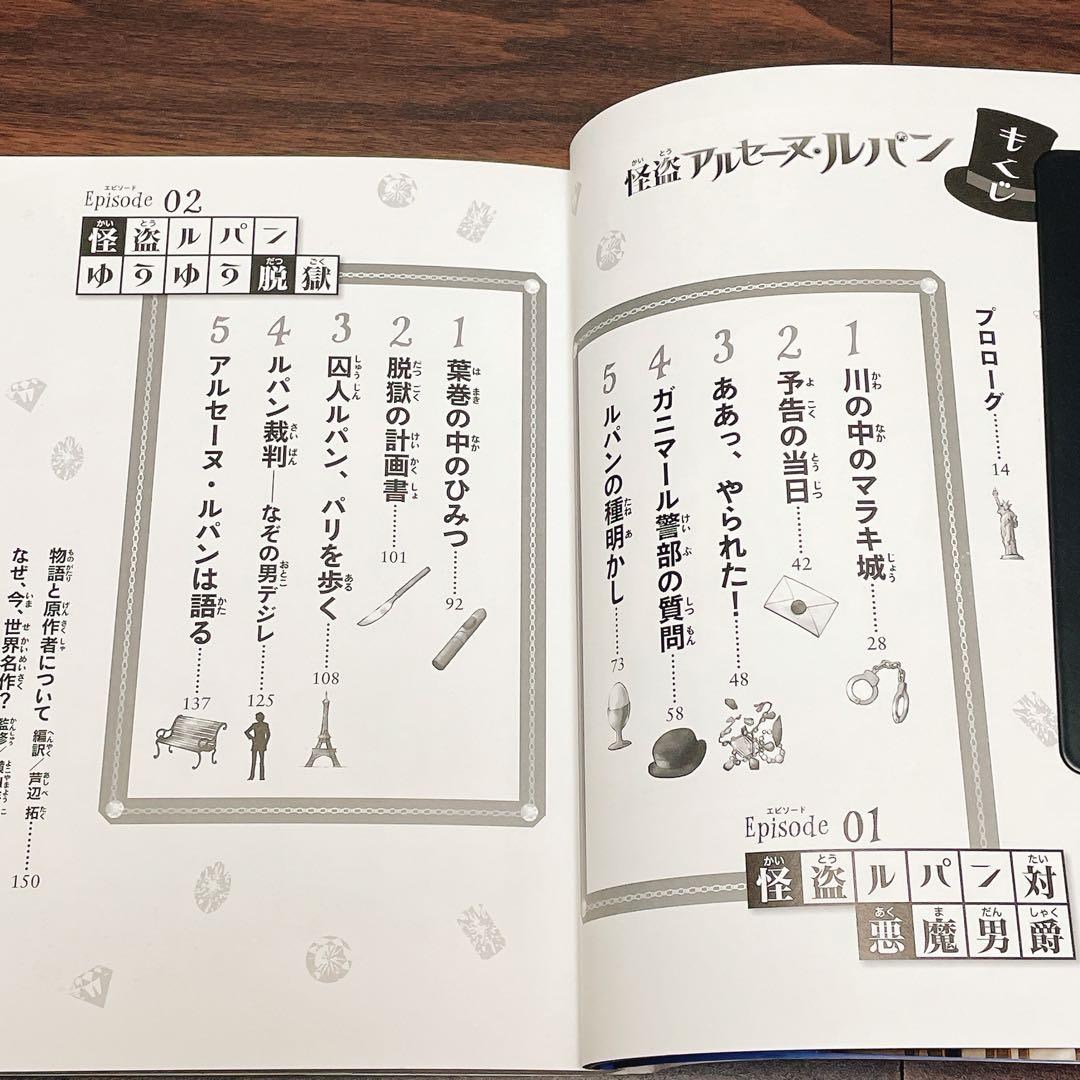 もくじ
怪盗アルセーヌ・ルパン
プロローグ………14
Episode 01
怪盗ルパン対
悪魔男爵
1 川の中のマラキ城………28
2 予告の当日………42
3 ああっ、やられた！………48
4 ガニマール警部の質問………58
5 ルパンの種明かし………73
Episode 02
怪盗ルパン
ゆうゆう脱獄
1 葉巻の中のひみつ………92
2 脱獄の計画書………101
3 囚人ルパン、パリを歩く………108
4 ルパン裁判――なぞの男デジレ………125
5 アルセーヌ・ルパンは語る………137
物語と原作者について 編訳／芦辺 拓………150
なぜ、今、世界名作？ 監修／横山